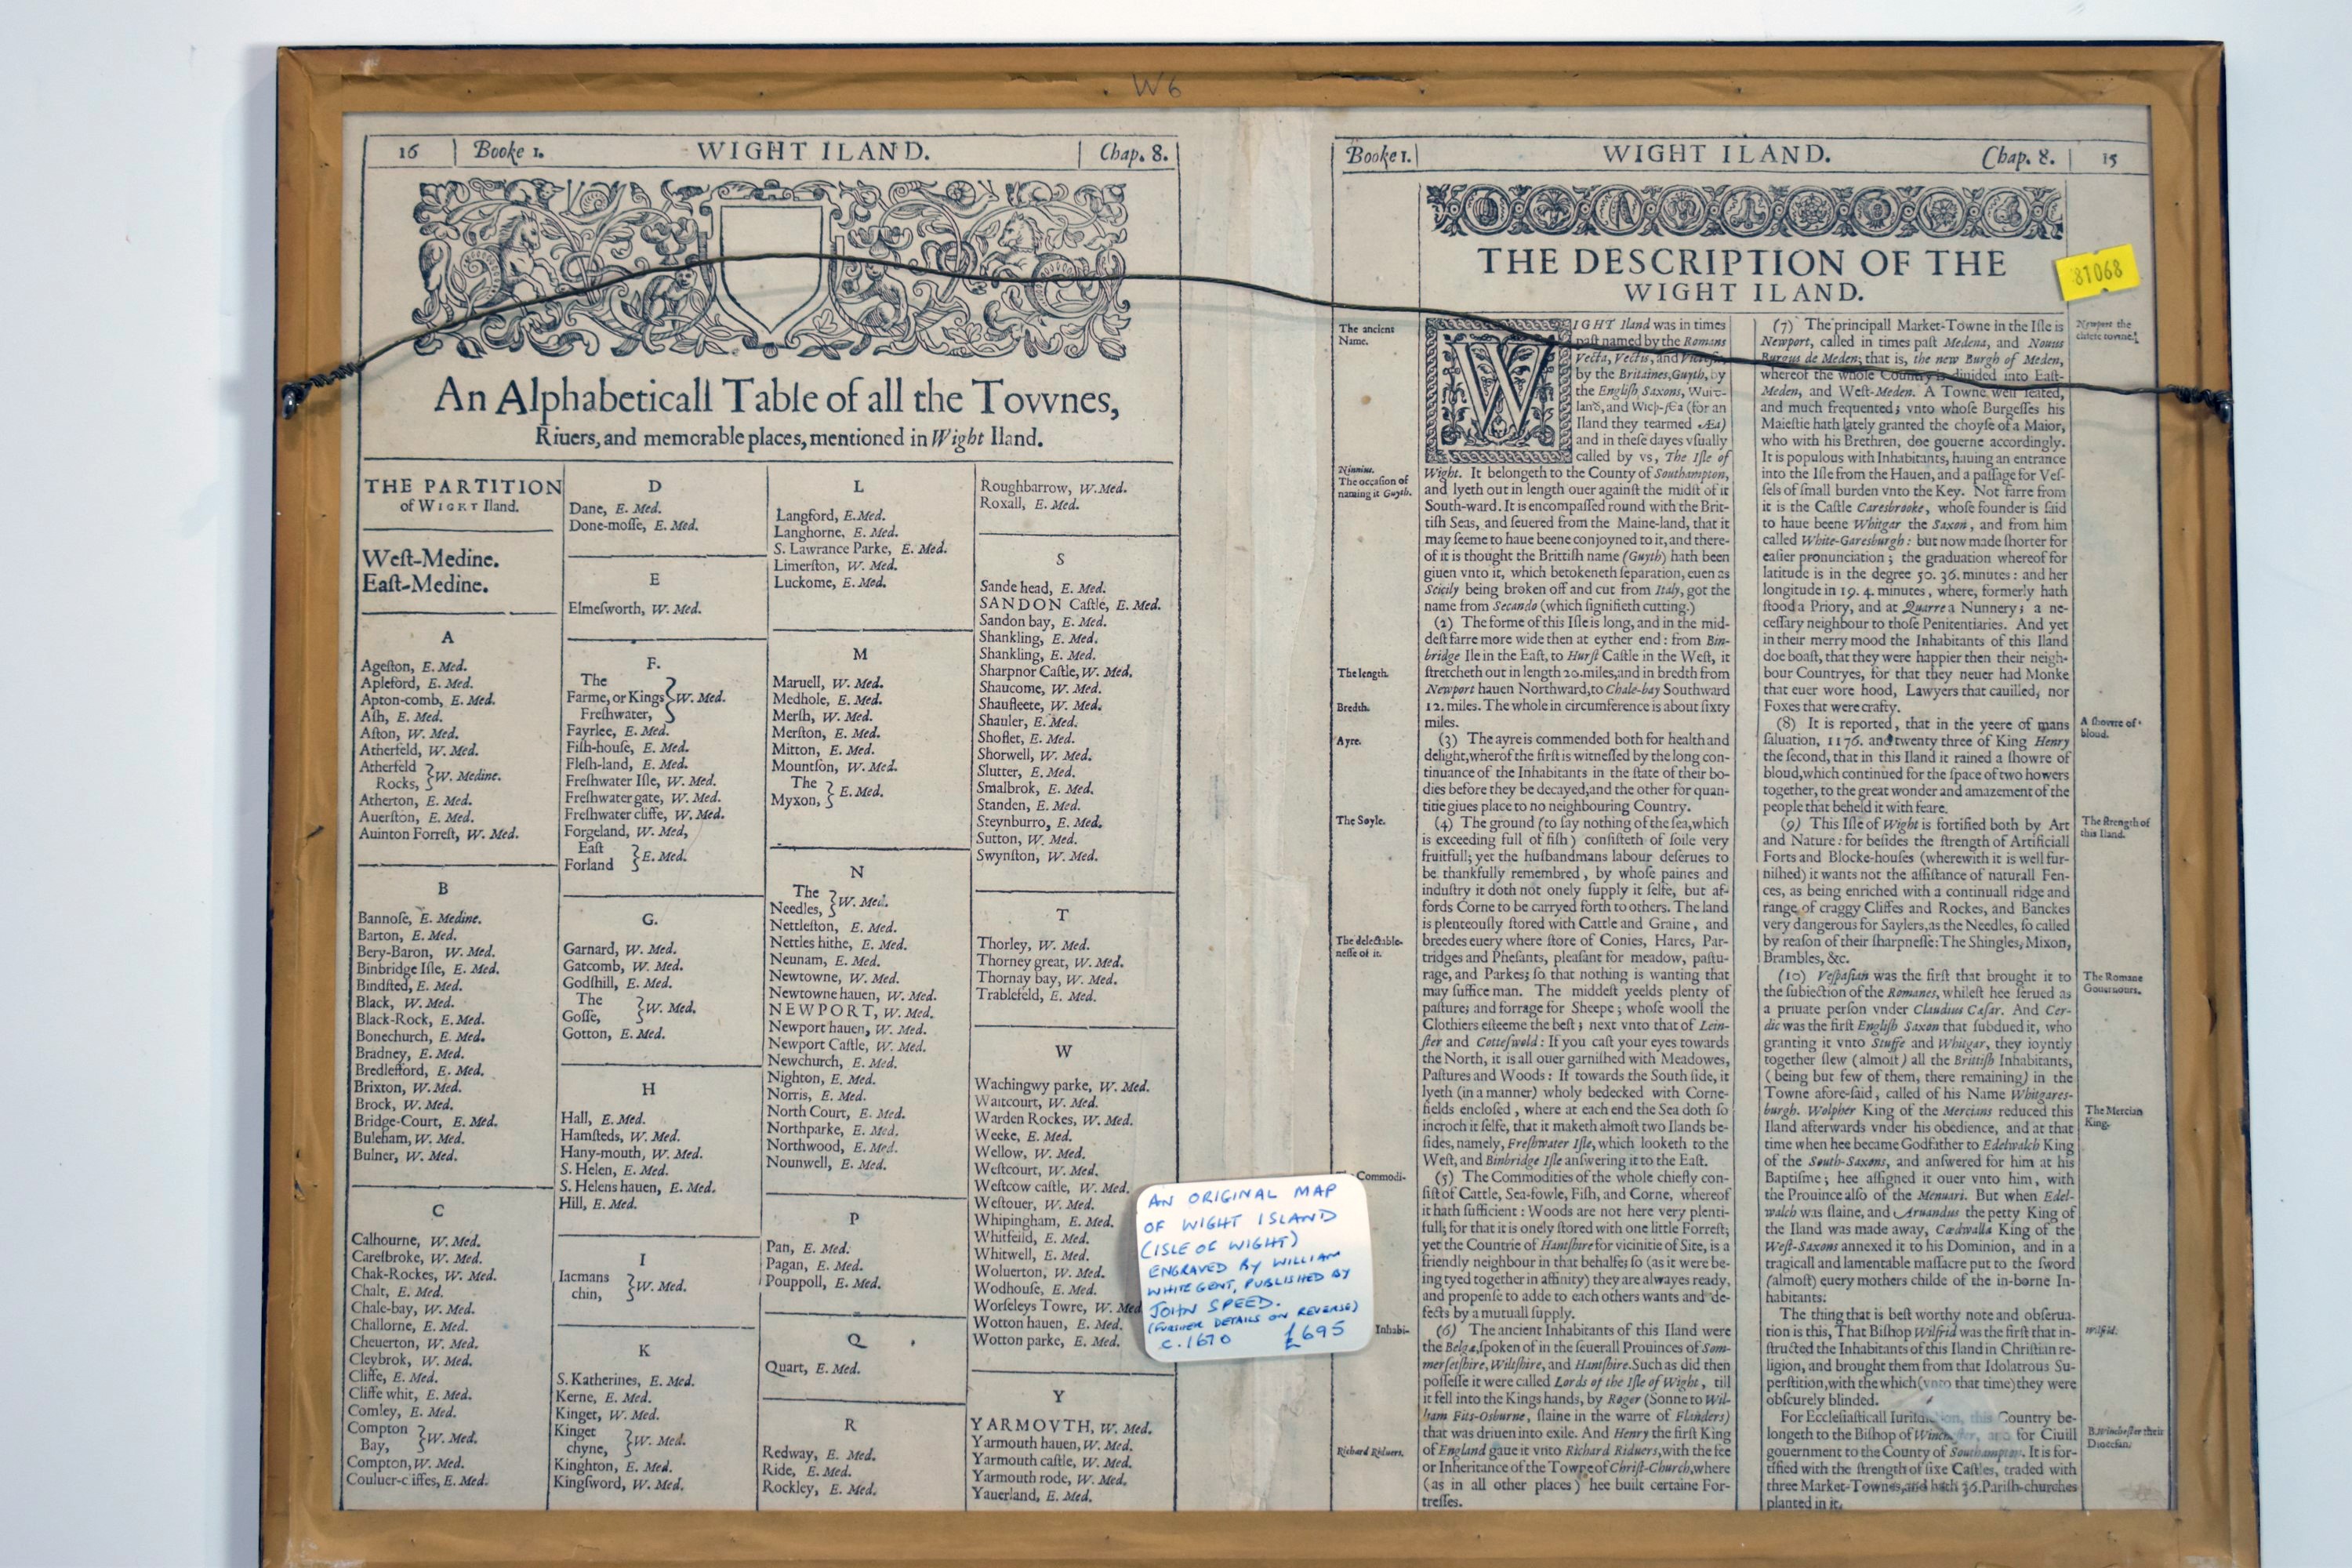 W6
16 Booke 1. WIGHT ILAND. Chap. 8.
An Alphabeticall Table of all the Tovvnes,
Riuers, and memorable places, mentioned in Wight Iland.
THE PARTITION
of WIGHT Iland.
Weſt-Medine.
Eaſt-Medine.
A
Ageſton, E. Med.
Apleford, E. Med.
Apton-comb, E. Med.
Aſh, E. Med.
Aſton, W. Med.
Atherfeld, W. Med.
Atherfeld
Rocks, } W. Medine.
Atherton, E. Med.
Auerſton, E. Med.
Auinton Forreſt, W. Med.
B
Bannoſe, E. Medine.
Barton, E. Med.
Bery-Baron, W. Med.
Binbridge Iſle, E. Med.
Bindſted, E. Med.
Black, W. Med.
Black-Rock, E. Med.
Bonechurch, E. Med.
Bradney, E. Med.
Bredlefford, E. Med.
Brixton, W. Med.
Brock, W. Med.
Bridge-Court, E. Med.
Buleham, W. Med.
Bulner, W. Med.
C
Calhourne, W. Med.
Careſbroke, W. Med.
Chak-Rockes, W. Med.
Chalt, E. Med.
Chale-bay, W. Med.
Challorne, E. Med.
Cheuerton, W. Med.
Cleybrok, W. Med.
Cliffe, E. Med.
Cliffe whit, E. Med.
Comley, E. Med.
Compton
Bay, } W. Med.
Compton, W. Med.
Couluer-c iffes, E. Med.
D
Dane, E. Med.
Done-moſſe, E. Med.
E
Elmeſworth, W. Med.
F.
The
Farme, or Kings } W. Med.
Freſhwater,
Fayrlee, E. Med.
Fiſh-houſe, E. Med.
Fleſh-land, E. Med.
Freſhwater Iſle, W. Med.
Freſhwater gate, W. Med.
Freſhwater cliffe, W. Med.
Forgeland, W. Med,
Eaſt
Forland } E. Med.
G.
Garnard, W. Med.
Gatcomb, W. Med.
Godſhill, E. Med.
The
Goſſe, } W. Med.
Gotton, E. Med.
H
Hall, E. Med.
Hamſteds, W. Med.
Hany-mouth, W. Med.
S. Helen, E. Med.
S. Helens hauen, E. Med.
Hill, E. Med.
I
Iacmans
chin, } W. Med.
K
S. Katherines, E. Med.
Kerne, E. Med.
Kinget, W. Med.
Kinget
chyne, } W. Med.
Kinghton, E. Med.
Kingſword, W. Med.
L
Langford, E. Med.
Langhorne, E. Med.
S. Lawrance Parke, E. Med.
Limerſton, W. Med.
Luckome, E. Med.
M
Maruell, W. Med.
Medhole, E. Med.
Merſh, W. Med.
Merſton, E. Med.
Mitton, E. Med.
Mountſon, W. Med.
The
Myxon, } E. Med.
N
The
Needles, } W. Med.
Nettleſton, E. Med.
Nettles hithe, E. Med.
Neunam, E. Med.
Newtowne, W. Med.
Newtowne hauen, W. Med.
NEWPORT, W. Med.
Newport hauen, W. Med.
Newport Caſtle, W. Med.
Newchurch, E. Med.
Nighton, E. Med.
Norris, E. Med.
North Court, E. Med.
Northparke, E. Med.
Northwood, E. Med.
Nounwell, E. Med.
P
Pan, E. Med.
Pagan, E. Med.
Pouppoll, E. Med.
Q
Quart, E. Med.
R
Redway, E. Med.
Ride, E. Med.
Rockley, E. Med.
Roughbarrow, W. Med.
Roxall, E. Med.
S
Sande head, E. Med.
SANDON Caſtle, E. Med.
Sandon bay, E. Med.
Shankling, E. Med.
Shankling, E. Med.
Sharpnor Caſtle, W. Med.
Shaucome, W. Med.
Shaufleete, W. Med.
Shauler, E. Med.
Shoflet, E. Med.
Shorwell, W. Med.
Slutter, E. Med.
Smalbrok, E. Med.
Standen, E. Med.
Steynburro, E. Med.
Sutton, W. Med.
Swynſton, W. Med.
T
Thorley, W. Med.
Thorney great, W. Med.
Thornay bay, W. Med.
Trablefeld, E. Med.
W
Wachingwy parke, W. Med.
Waitcourt, W. Med.
Warden Rockes, W. Med.
Weeke, E. Med.
Wellow, W. Med.
Weſtcourt, W. Med.
Weſtcow caſtle, W. Med.
Weſtouer, W. Med.
Whipingham, E. Med.
Whitfeild, E. Med.
Whitwell, E. Med.
Woluerton, W. Med.
Wodhouſe, E. Med.
Worſeleys Towre, W. Med
Wotton hauen, E. Med.
Wotton parke, E. Med.
Y
YARMOVTH, W. Med.
Yarmouth hauen, W. Med.
Yarmouth caſtle, W. Med.
Yarmouth rode, W. Med.
Yauerland, E. Med.
AN ORIGINAL MAP
OF WIGHT ISLAND
(ISLE OF WIGHT)
ENGRAVED BY WILLIAM
WHITE GENT, PUBLISHED BY
JOHN SPEED.
(FURTHER DETAILS ON REVERSE)
c.1670 £695
Booke 1. WIGHT ILAND. Chap. 8. 15
THE DESCRIPTION OF THE
WIGHT ILAND.
81068
The ancient
Name.
Ninnius.
The occaſion of
naming it Guyth.
The length.
Bredth.
Ayre.
The Soyle.
The delectable-
neſſe of it.
Commodi-
Inhabi-
Richard Riduers.
WIGHT Iland was in times
paſt named by the Romans
Vecta, Vectis, and
by the Britaines, Guyth, by
the Engliſh Saxons,
(for an
Iland they tearmed Æa)
and in theſe dayes vſually
called by vs, The Iſle of
Wight. It belongeth to the County of Southampton,
and lyeth out in length ouer againſt the midſt of it
South-ward. It is encompaſſed round with the Brit-
tiſh Seas, and ſeuered from the Maine-land, that it
may ſeeme to haue beene conjoyned to it, and there-
of it is thought the Brittiſh name (Guyth) hath been
giuen vnto it, which betokeneth ſeparation, euen as
Scicily being broken off and cut from Italy, got the
name from Secando (which ſignifieth cutting.)
(2) The forme of this Iſle is long, and in the mid-
deſt farre more wide then at eyther end: from Bin-
bridge Ile in the Eaſt, to Hurſt Caſtle in the Weſt, it
ſtretcheth out in length 20. miles, and in bredth from
Newport hauen Northward, to Chale-bay Southward
12. miles. The whole in circumference is about ſixty
miles.
(3) The ayre is commended both for health and
delight, wherof the firſt is witneſſed by the long con-
tinuance of the Inhabitants in the ſtate of their bo-
dies before they be decayed, and the other for quan-
titie giues place to no neighbouring Country.
(4) The ground (to ſay nothing of the ſea, which
is exceeding full of fiſh) conſiſteth of ſoile very
fruitfull; yet the huſbandmans labour deſerues to
be thankfully remembred, by whoſe paines and
induſtry it doth not onely ſupply it ſelfe, but af-
fords Corne to be carryed forth to others. The land
is plenteouſly ſtored with Cattle and Graine, and
breedes euery where ſtore of Conies, Hares, Par-
tridges and Pheſants, pleaſant for meadow, paſtu-
rage, and Parkes; ſo that nothing is wanting that
may ſuffice man. The middeſt yeelds plenty of
paſture; and forrage for Sheepe; whoſe wooll the
Clothiers eſteeme the beſt; next vnto that of Lein-
ſter and Cotteſwold: If you caſt your eyes towards
the North, it is all ouer garniſhed with Meadowes,
Paſtures and Woods: If towards the South ſide, it
lyeth (in a manner) wholy bedecked with Corne-
fields encloſed, where at each end the Sea doth ſo
incroch it ſelfe, that it maketh almoſt two Ilands be-
ſides, namely, Freſhwater Iſle, which looketh to the
Weſt, and Binbridge Iſle anſwering it to the Eaſt.
(5) The Commodities of the whole chiefly con-
ſiſt of Cattle, Sea-fowle, Fiſh, and Corne, whereof
it hath ſufficient: Woods are not here very plenti-
full; for that it is onely ſtored with one little Forreſt;
yet the Countrie of Hantſhire for vicinitie of Site, is a
friendly neighbour in that behalfe; ſo (as it were be-
ing tyed together in affinity) they are alwayes ready,
and propenſe to adde to each others wants and de-
fects by a mutuall ſupply.
(6) The ancient Inhabitants of this Iland were
the Belgæ, ſpoken of in the ſeuerall Prouinces of Som-
merſetſhire, Wiltſhire, and Hantſhire. Such as did then
poſſeſſe it were called Lords of the Iſle of Wight, till
it fell into the Kings hands, by Roger (Sonne to Wil-
liam Fits-Osburne, ſlaine in the warre of Flanders)
that was driuen into exile. And Henry the firſt King
of England gaue it vnto Richard Riduers, with the fee
or Inheritance of the Towne of Chriſt-Church, where
(as in all other places) hee built certaine For-
treſſes.
(7) The principall Market-Towne in the Iſle is
Newport, called in times paſt Medena, and Nouus
Burgus de Meden; that is, the new Burgh of Meden,
whereof the whole Country is diuided into Eaſt-
Meden, and Weſt-Meden. A Towne well ſeated,
and much frequented; vnto whoſe Burgeſſes his
Maieſtie hath lately granted the choyſe of a Maior,
who with his Brethren, doe gouerne accordingly.
It is populous with Inhabitants, hauing an entrance
into the Iſle from the Hauen, and a paſſage for Veſ-
ſels of ſmall burden vnto the Key. Not farre from
it is the Caſtle Caresbrooke, whoſe founder is ſaid
to haue beene Whitgar the Saxon, and from him
called White-Garesburgh: but now made ſhorter for
eaſier pronunciation; the graduation whereof for
latitude is in the degree 50. 36. minutes: and her
longitude in 19. 4. minutes, where, formerly hath
ſtood a Priory, and at Quarre a Nunnery; a ne-
ceſſary neighbour to thoſe Penitentiaries. And yet
in their merry mood the Inhabitants of this Iland
doe boaſt, that they were happier then their neigh-
bour Countryes, for that they neuer had Monke
that euer wore hood, Lawyers that cauilled, nor
Foxes that were crafty.
(8) It is reported, that in the yeere of mans
ſaluation, 1176. and twenty three of King Henry
the ſecond, that in this Iland it rained a ſhowre of
bloud, which continued for the ſpace of two howers
together, to the great wonder and amazement of the
people that beheld it with feare.
(9) This Iſle of Wight is fortified both by Art
and Nature: for beſides the ſtrength of Artificiall
Forts and Blocke-houſes (wherewith it is well fur-
niſhed) it wants not the aſſiſtance of naturall Fen-
ces, as being enriched with a continuall ridge and
range of craggy Cliffes and Rockes, and Banckes
very dangerous for Saylers, as the Needles, ſo called
by reaſon of their ſharpneſſe: The Shingles, Mixon,
Brambles, &c.
(10) Veſpaſian was the firſt that brought it to
the ſubiection of the Romanes, whileſt hee ſerued as
a priuate perſon vnder Claudius Cæſar. And Cer-
dic was the firſt Engliſh Saxon that ſubdued it, who
granting it vnto Stuffe and Whitgar, they ioyntly
together ſlew (almoſt) all the Brittiſh Inhabitants,
(being but few of them, there remaining) in the
Towne afore-ſaid, called of his Name Whitgares-
burgh. Wolpher King of the Mercians reduced this
Iland afterwards vnder his obedience, and at that
time when hee became Godfather to Edelwalch King
of the South-Saxons, and anſwered for him at his
Baptiſme; hee aſſigned it ouer vnto him, with
the Prouince alſo of the Menuari. But when Edel-
walch was ſlaine, and Aruandus the petty King of
the Iland was made away, Cædwalla King of the
Weſt-Saxons annexed it to his Dominion, and in a
tragicall and lamentable maſſacre put to the ſword
(almoſt) euery mothers childe of the in-borne In-
habitants:
The thing that is beſt worthy note and obſerua-
tion is this, That Biſhop Wilfrid was the firſt that in-
ſtructed the Inhabitants of this Iland in Chriſtian re-
ligion, and brought them from that Idolatrous Su-
perſtition, with the which (vnto that time) they were
obſcurely blinded.
For Eccleſiaſticall Iuriſdiction, this Country be-
longeth to the Biſhop of Wincheſter, and for Ciuill
gouernment to the County of Southampton. It is for-
tified with the ſtrength of ſixe Caſtles, traded with
three Market-Townes, and hath 36. Pariſh-churches
planted in it.
Newport the
chiefe towne.
A ſhowre of
bloud.
The ſtrength of
this Iland.
The Romane
Gouernours.
The Mercian
King.
Wilfrid.
B. Wincheſter their
Dioceſan.